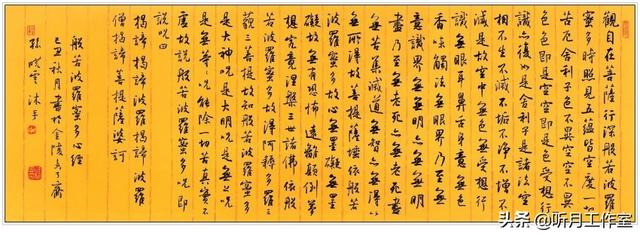 觀自在菩薩行深般若波羅蜜
多時照見五蘊皆空度一切
苦厄舍利子色不異空空不異
色色即是空空即是色受想行
識亦復如是舍利子是諸法空
相不生不滅不垢不淨不增不
減是故空中無色無受想行
識無眼耳鼻舌身意無色聲
香味觸法無眼界乃至無
意識界無無明亦無無明
盡乃至無老死亦無老死盡
無苦集滅道無智亦無得以
無所得故菩提薩埵依般若
波羅蜜多故心無罣礙無罣
礙故無有恐怖遠離顛倒夢
想究竟涅槃三世諸佛依般
若波羅蜜多故得阿耨多羅三
藐三菩提故知般若波羅蜜多
是大神咒是大明咒是無上咒
是無等等咒能除一切苦真實不
虛故說般若波羅蜜多咒即
說咒曰
揭諦揭諦波羅揭諦波羅
僧揭諦菩提薩婆訶
般若波羅蜜多心經
己丑秋月書於金陵齋
孫曉雲沐手
头条 @听月工作室